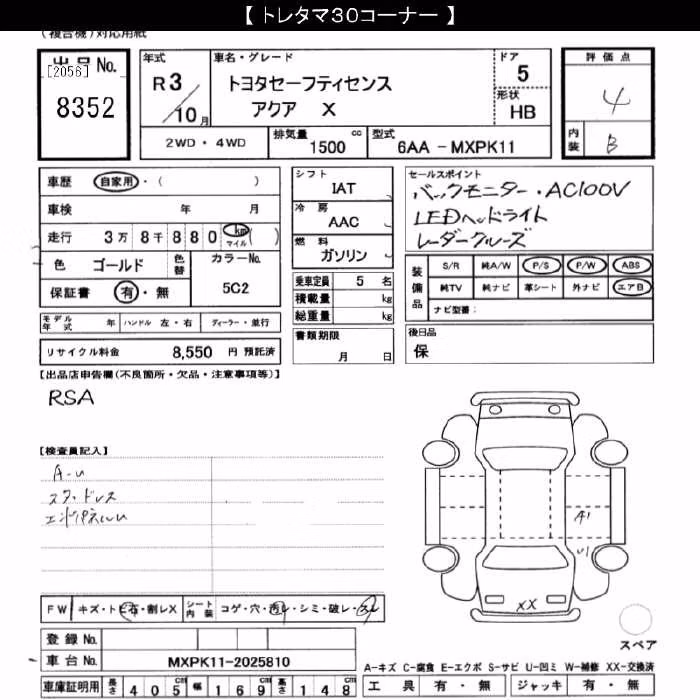 【 トレタマ30コーナー 】
(複合機)対応用紙
出品No.
[2056]
8352
年式
R3/10月
車名・グレード
トヨタセーフティセンス
アクア X
ドア
5
形状
HB
評価点
4
内装
B
2WD・4WD
排気量 1500 cc
型式 6AA-MXPK11
車歴 自家用・( )
車検 年 月
走行 3万8千880 km マイル ( )
色 ゴールド 色替 カラーNo.
保証書 有・無 5C2
シフト
IAT
冷房
AAC
燃料
ガソリン
セールスポイント
バックモニター・AC100V
LEDヘッドライト
レーダークルーズ
乗車定員 5 名
積載量 kg
総重量 kg
装備品
S/R 純A/W P/S P/W ABS
純TV 純ナビ 革シート 外ナビ エアB
ナビ型番:
モデル年式 年 ハンドル 左・右 ディーラー・並行
リサイクル料金 8,550 円 預託済
書類期限
月 日
後日品
保
【出品店申告欄(不良箇所・欠品・注意事項等)】
RSA
【検査員記入】
A-U
スタッドレス
エンドパネルU
A1
U1
XX
FW キズ・トビ石・割レX シート内装 コゲ・穴・汚レ・シミ・破レ・スレ
登録No.
車台No. MXPK11-2025810
スペア
A-キズ C-腐食 E-エクボ S-サビ U-凹ミ W-補修 XX-交換済
車庫証明用 長さ 405cm 幅 169cm 高さ 148cm
工具 有・無 ジャッキ 有・無